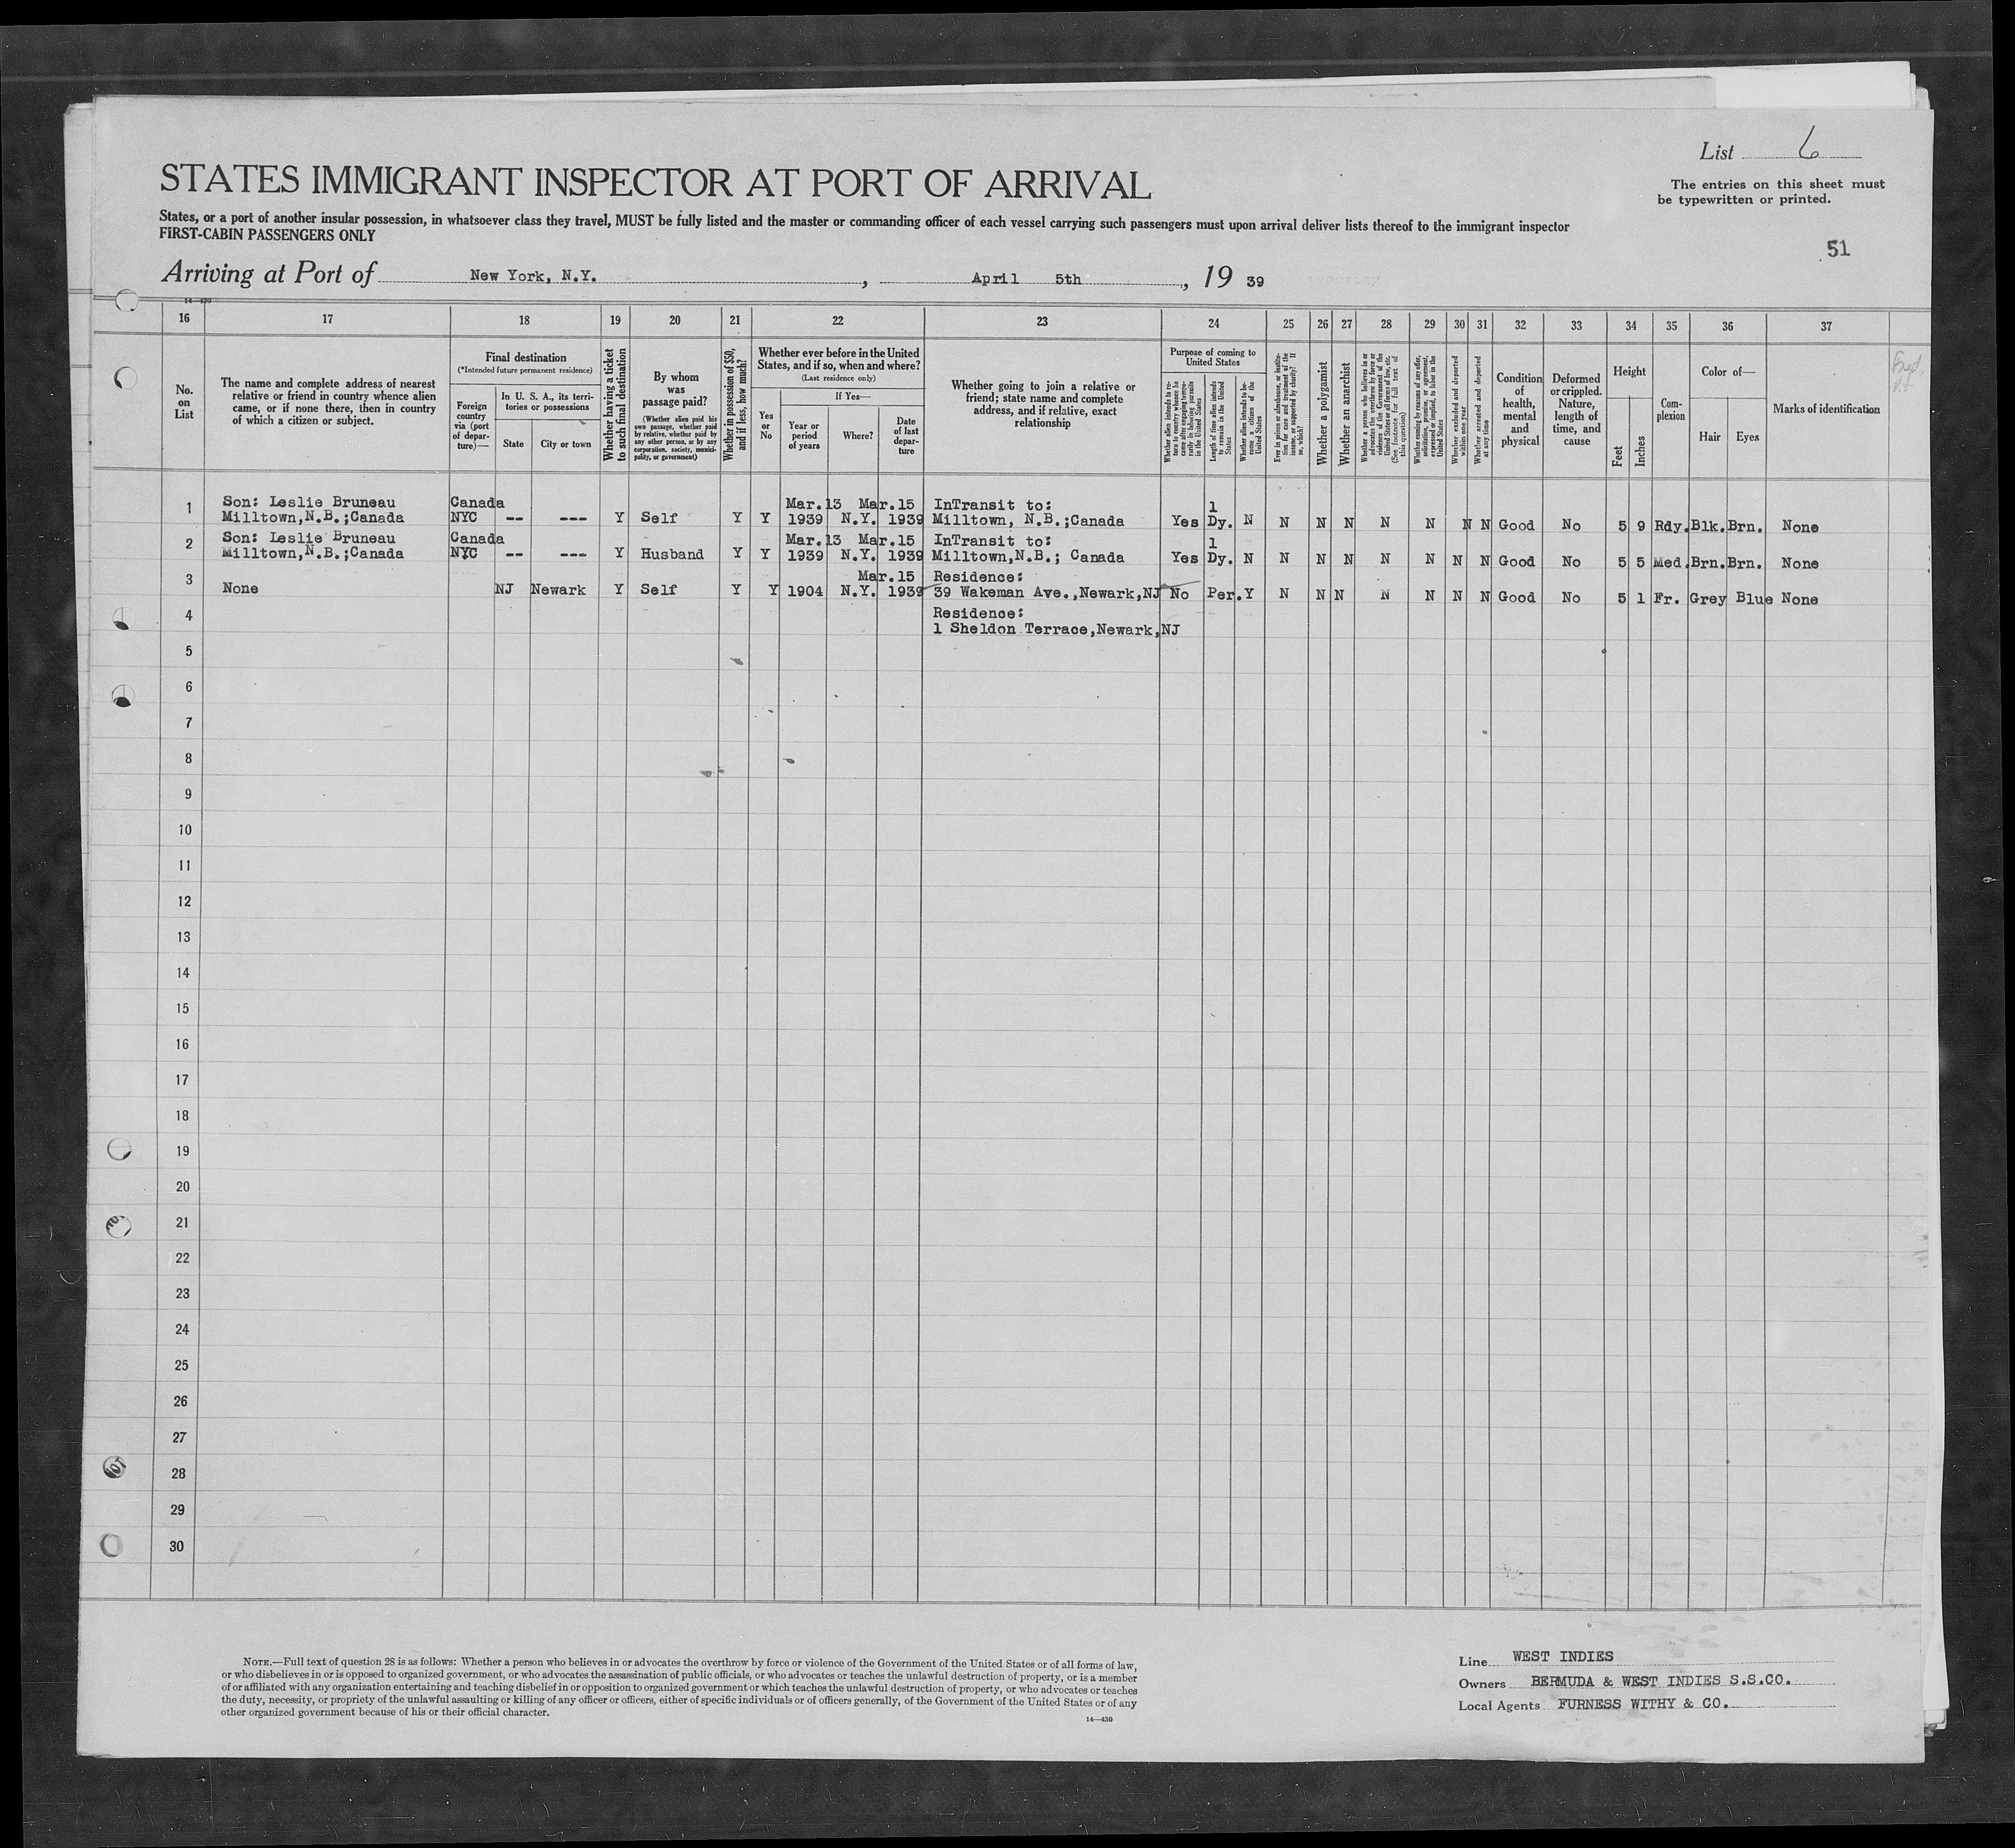 List 6
The entries on this sheet must
be typewritten or printed.
STATES IMMIGRANT INSPECTOR AT PORT OF ARRIVAL
States, or a port of another insular possession, in whatsoever class they travel, MUST be fully listed and the master or commanding officer of each vessel carrying such passengers must upon arrival deliver lists thereof to the immigrant inspector
FIRST-CABIN PASSENGERS ONLY
51
Arriving at Port of New York, N.Y. , April 5th , 19 39
14—430
16 17 18 19 20 21 22 23 24 25 26 27 28 29 30 31 32 33 34 35 36 37
No.
on
List
The name and complete address of nearest
relative or friend in country whence alien
came, or if none there, then in country
of which a citizen or subject.
Final destination
(*Intended future permanent residence)
Foreign
country
via (port
of depar-
ture)—
In U. S. A., its terri-
tories or possessions
State
City or town
Whether having a ticket
to such final destination
By whom
was
passage paid?
(Whether alien paid his
own passage, whether paid
by relative, whether paid by
any other person, or by any
corporation, society, munici-
pality, or government)
Whether in possession of $50,
and if less, how much?
Whether ever before in the United
States, and if so, when and where?
(Last residence only)
Yes
or
No
If Yes—
Year or
period
of years
Where?
Date
of last
depar-
ture
Whether going to join a relative or
friend; state name and complete
address, and if relative, exact
relationship
Purpose of coming to
United States
Whether alien intends to re-
turn to country whence he
came after engaging tempo-
rarily in laboring pursuits
in the United States
Length of time alien intends
to remain in the United
States
Whether alien intends to be-
come a citizen of the
United States
Ever in prison or almshouse, or institu-
tion for care and treatment of the
insane, or supported by charity? If
so, which?
Whether a polygamist
Whether an anarchist
Whether a person who believes in or
advocates the overthrow by force or
violence of the Government of the
United States or all forms of law, etc.
(See footnote for full text of
this question)
Whether coming by reasons of any offer,
solicitation, promise, or agreement,
expressed or implied, to labor in the
United States
Whether excluded and deported
within one year
Whether arrested and deported
at any time
Condition
of
health,
mental
and
physical
Deformed
or crippled.
Nature,
length of
time, and
cause
Height
Feet
Inches
Com-
plexion
Color of—
Hair
Eyes
Marks of identification
1 Son: Leslie Bruneau Canada Mar.13 Mar.15 InTransit to: 1
Milltown,N.B.;Canada NYC -- --- Y Self Y Y 1939 N.Y. 1939 Milltown, N.B.;Canada Yes Dy. N N N N N N N N Good No 5 9 Rdy. Blk. Brn. None
2 Son: Leslie Bruneau Canada Mar.13 Mar.15 InTransit to: 1
Milltown,N.B.;Canada NYC -- --- Y Husband Y Y 1939 N.Y. 1939 Milltown,N.B.; Canada Yes Dy. N N N N N N N N Good No 5 5 Med. Brn. Brn. None
3 Mar.15 Residence:
None NJ Newark Y Self Y Y 1904 N.Y. 1939 39 Wakeman Ave.,Newark,NJ No Per. Y N N N N N N N Good No 5 1 Fr. Grey Blue None
4 Residence:
1 Sheldon Terrace,Newark,NJ
5
6
7
8
9
10
11
12
13
14
15
16
17
18
19
20
21
22
23
24
25
26
27
28
29
30
NOTE.—Full text of question 28 is as follows: Whether a person who believes in or advocates the overthrow by force or violence of the Government of the United States or of all forms of law,
or who disbelieves in or is opposed to organized government, or who advocates the assassination of public officials, or who advocates or teaches the unlawful destruction of property, or is a member
of or affiliated with any organization entertaining and teaching disbelief in or opposition to organized government or which teaches the unlawful destruction of property, or who advocates or teaches
the duty, necessity, or propriety of the unlawful assaulting or killing of any officer or officers, either of specific individuals or of officers generally, of the Government of the United States or of any
other organized government because of his or their official character.
14—430
Line WEST INDIES
Owners BERMUDA & WEST INDIES S.S.CO.
Local Agents FURNESS WITHY & CO.